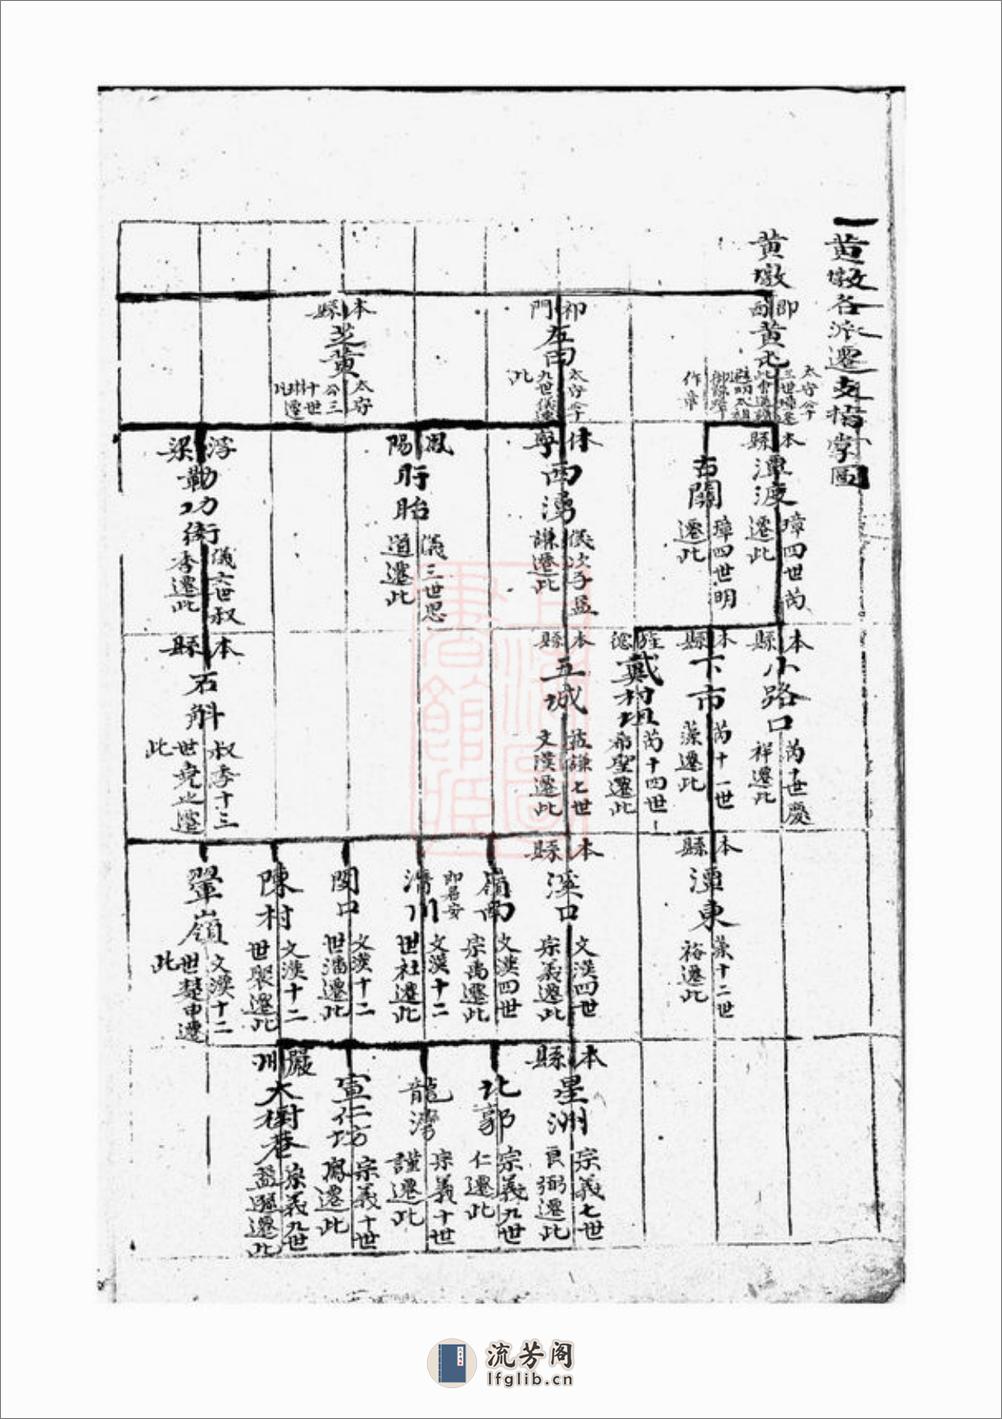 一黃墩各派遷支指掌圖
黃墩
即
黃屯
太守公
祁門
左田
太守公
九世儀遷
此
本縣
芝黃
太守
公三
十世
遷
本縣
潭渡
璋四世芮
遷此
古關
璋四世明
遷此
休寧
西湧
儀次子益
謙遷此
鳳陽
盱眙
儀三世思
道遷此
浮梁
勒功街
儀六世叔
季遷此
本縣
小路口
芮世慶
祥遷此
本縣
下市
芮十一世
藻遷此
旌德
戴村垻
芮十四世
希聖遷此
本縣
五城
益謙七世
文漢遷此
本縣
石斛
叔季十三
世堯之遷
此
本縣
潭東
藻十二世
裕遷此
本縣
溪口
文漢四世
宗義遷此
嶺南
文漢四世
宗禹遷此
即居安
濟川
文漢十二
世社遷此
閔口
文漢十二
世潘遷此
陳村
文漢十二
世聚遷此
翬嶺
文漢十二
世楚申遷
此
本縣
星洲
宗義七世
良弼遷此
北郭
宗義九世
仁遷此
龍灣
宗義十世
謹遷此
宣仁坊
宗義十世
遷此
嚴州
大樹巷
宗義九世
遷此
流芳阁
lfglib.cn